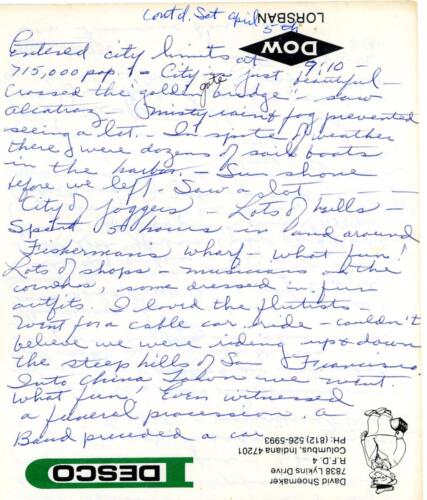 Cont'd. Sat April 5th
LORSBAN
DOW
Entered city limits at 9:10 -
715,000 pop. - City is just beautiful -
crossed the "golden gate bridge" - saw
alcatraz misty rain & fog prevented
seeing a lot. - In spite of weather
there were dozens of sail boats
in the harbor - Sun shone
before we left. Saw a lot
City of joggers - Lots of hills -
Spent 5 hours in and around
Fisherman's wharf - what fun!
Lots of shops - musicians on the
corners, some dressed in fun
outfits. I loved the flutists -
Went for a cable car ride - couldn't
believe we were riding up & down
the steep hills of San Francisco
Into China Town we went.
What fun! Even witnessed
a funeral procession. a
Band preceded a car
DESCO
David Shoemaker
7838 Lykins Drive
R.F.D. 4
Columbus, Indiana 47201
PH: (812) 526-5993